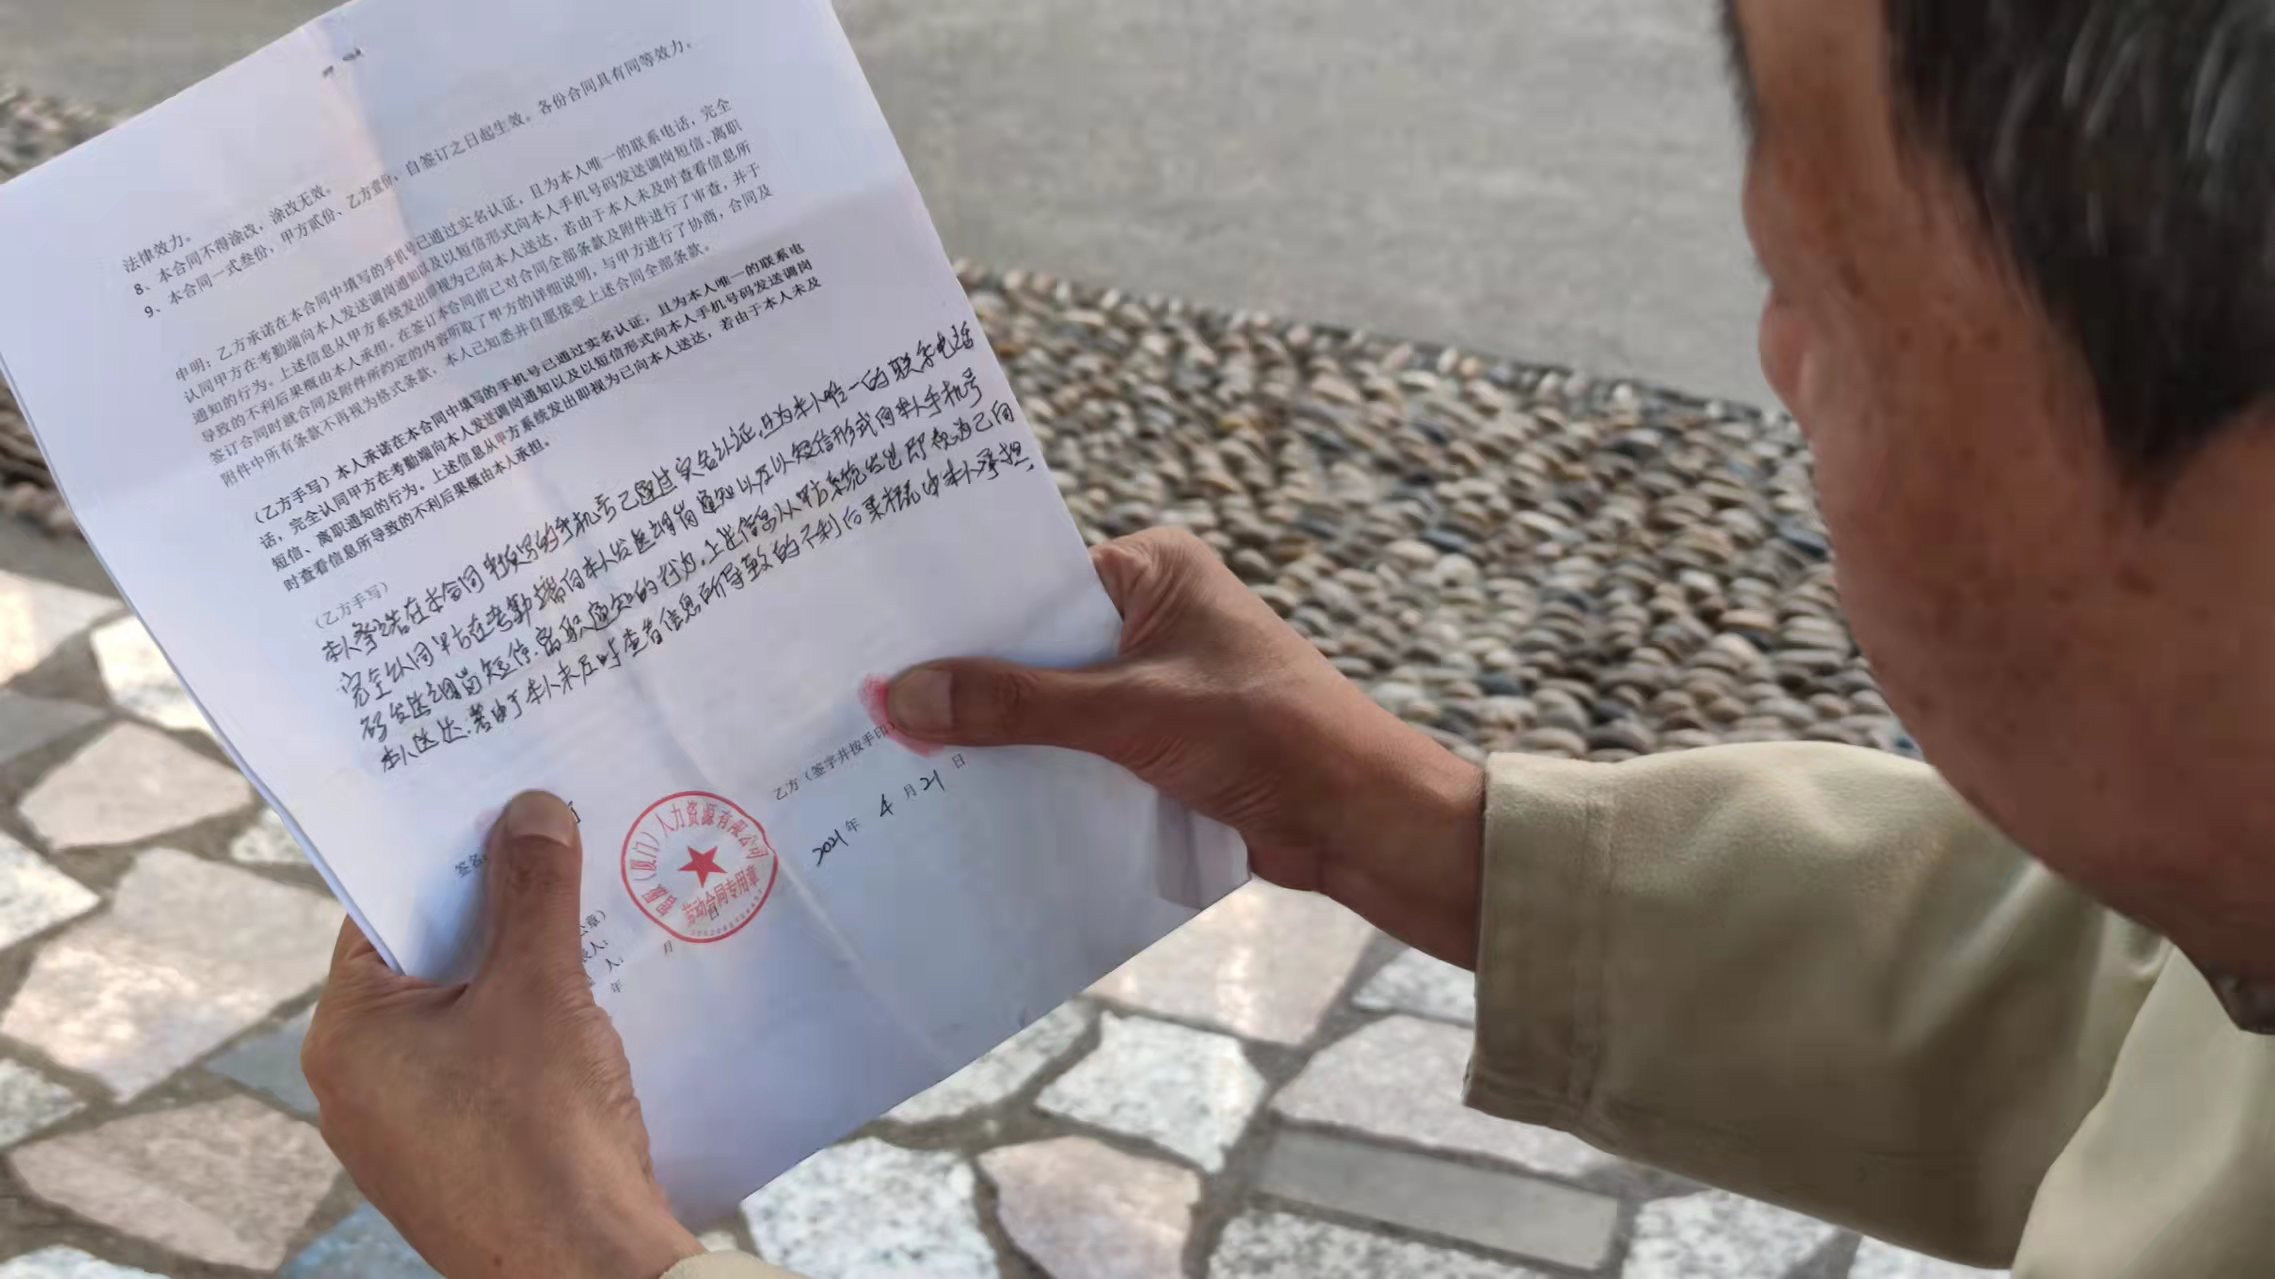 法律效力。
8、本合同不得涂改，涂改无效。
9、本合同一式叁份，甲方贰份、乙方壹份，自签订之日起生效。各份合同具有同等效力。
申明：乙方承诺在本合同中填写的手机号已通过实名认证，且为本人唯一的联系电话，完全
认同甲方在考勤端向本人发送调岗通知以及以短信形式向本人手机号码发送调岗短信、离职
通知的行为。上述信息从甲方系统发出即视为已向本人送达，若由于本人未及时查看信息所
导致的不利后果概由本人承担。在签订本合同前已对合同全部条款及附件进行了审查，并于
签订合同时就合同及附件所约定的内容听取了甲方的详细说明，与甲方进行了协商，合同及
附件中所有条款不再视为格式条款，本人已知悉并自愿接受上述合同全部条款。
（乙方手写）本人承诺在本合同中填写的手机号已通过实名认证，且为本人唯一的联系电
话，完全认同甲方在考勤端向本人发送调岗通知以及以短信形式向本人手机号码发送调岗
短信、离职通知的行为。上述信息从甲方系统发出即视为已向本人送达，若由于本人未及
时查看信息所导致的不利后果概由本人承担。
（乙方手写）
本人承诺在本合同中填写的手机号已通过实名认证，且为本人唯一的联系电话
完全认同甲方在考勤端向本人发送调岗通知以及以短信形式向本人手机号
码发送调岗短信、离职通知的行为。上述信息从甲方系统发出即视为已向
本人送达。若由于本人未及时查看信息所导致的不利后果概由本人承担。
乙方（签字并按手印
2021年 4月21日
签名
（厦门）人力资源有限公司
劳动合同专用章
章）
人：
人：
年 月